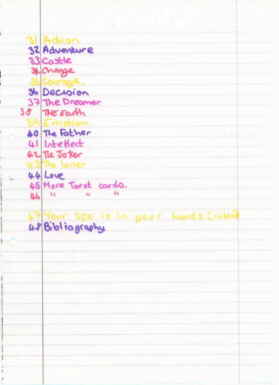 31 Action
32 Adventure
33 Castle
34 Change
35 Courage
36 Decision
37 The Dreamer
38 The Earth
39 Emotion
40 The Father
41 Intellect
42 The Joker
43 The lover
44 Love
45 More Tarot cards.
46 " " "
47 Your sex is in your hands
48 Bibliography